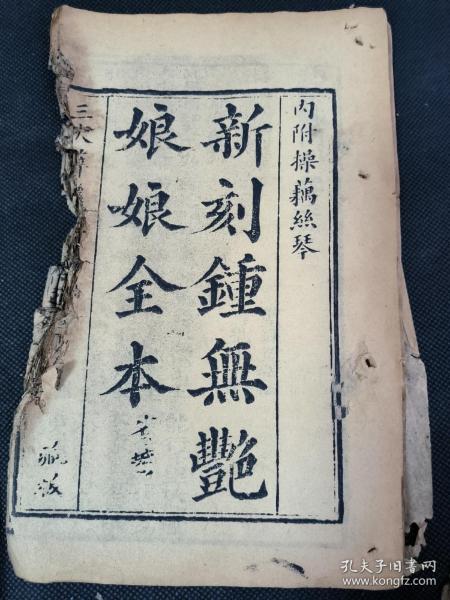 內附操藕絲琴
新刻鍾無艷
娘娘全本
三次
孔夫子旧书网
www.kongfz.com